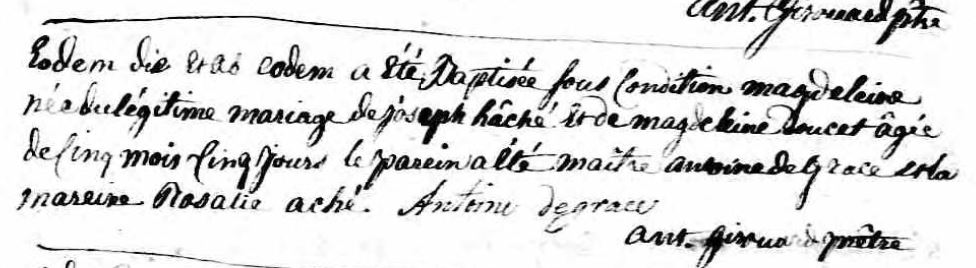 ant. Girouard ptre
Eodem die et ab eodem a été Baptisée sous Condition magdeleine
née du légitime mariage de joseph hâché et de magdeleine doucet âgée
de Cinq mois Cinq jours le parein a été maître antoine de Grace et la
mareine Rosalie aché. Antoine degrace
ant. girouard prêtre